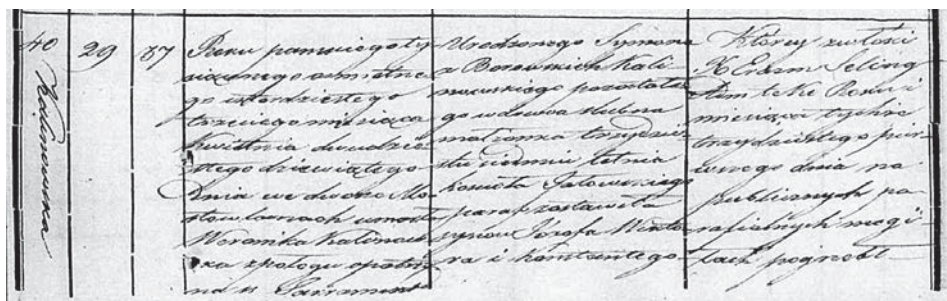 40
Kalinowska
29
37
Roku
siącznego osmsetne
go czterdziestego
trzeciego miesiąca
Kwietnia dwudzie
stego dziewiątego
Dnia we dworze Mo
stowlanach umarła
Weronika Kalinow
ska z połogu
na Sakrament
Urodzonego Symona
z Borowskich Kali
nowskiego pozostała
go wdowca
małżonka trzydzie
stu siedmiu letnia
kościoła Jałowskiego
paraf zostawiła
synów Józefa Wikto
ra i Konstantego
Której zwłoki
X Erazm Seling
Roku i
miesiąca tychże
trzydziestego pier
wszego dnia na
publicznych pa
rafialnych mogi
łach pogrzebł